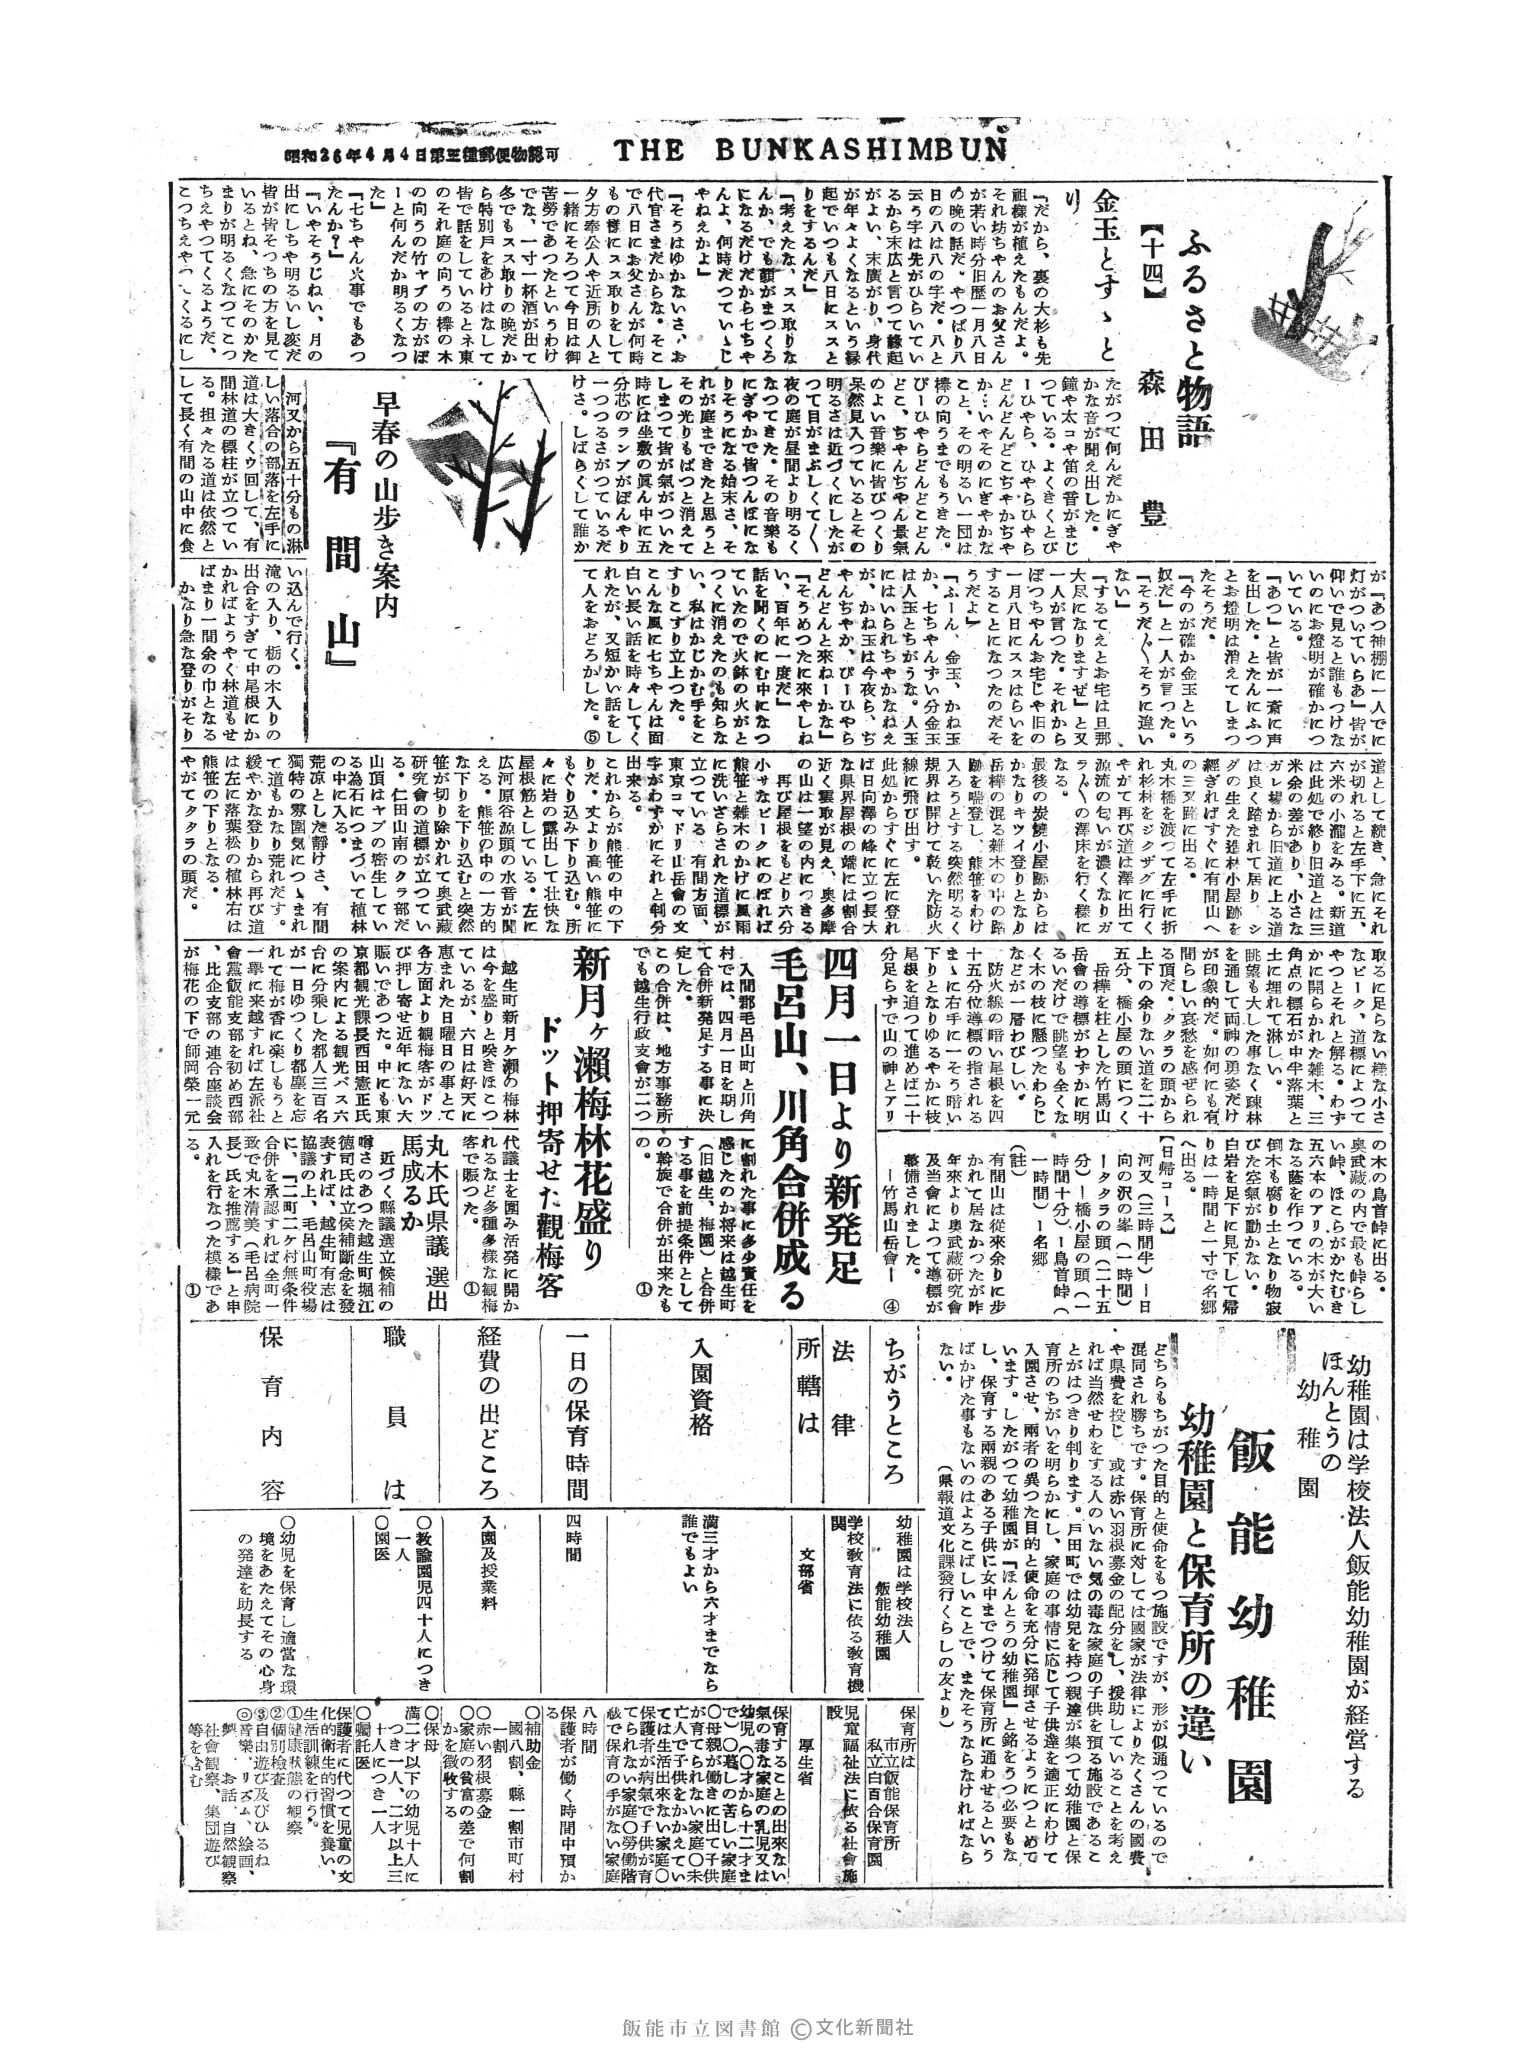 昭和26年4月4日第三種郵便物認可
THE BUNKASHIMBUN
ふるさと物語
【十四】 森田 豊
金玉とすゝと
り
「だから、裏の大杉も先
祖様が植えたもんだよ。
それ坊ちゃんのお父さん
が若い時分旧歴一月八日
の晩の話だ。やつぱり八
日の八は八の字だ。八と
云う字は先がひらいてい
るから末広と言つて縁起
がよい、末廣がり、身代
が年々よくなるという縁
起でいつも八日にススと
りをするんだ」
「考えたな、スス取りな
んか、でも顔がまつくろ
になるだけだから七ちや
んよ、何時だつていゝじ
やねえかよ」
「そうはゆかないさ、お
代官さまだからな。そこ
で八日にお父さんが何時
もの様にスス取りをして
夕方奉公人や近所の人と
一緒にそろつて今日は御
苦勞であつたというわけ
でな、一寸一杯酒が出て
冬でもスス取りの晩だか
ら特別戸をあけはなして
皆で話をしているとネ東
のそれ庭の向うの欅の木
の向うの竹ヤブの方がぼ
ーと何んだか明るくなつ
た」
「七ちやん火事でもあつ
たんか?」
「いやそうじねい、月の
出にしちや明るいし変だ
皆が皆そつちの方を見て
いるとね、急にそのかた
まりが明るくなつてこつ
ちえやつてくるようだ、
たがつて何んだかにぎや
かな音が聞え出した。
鐘や太コや笛の音がまじ
つている。よくきくとぴ
ーひやら、ひやらひやら
どんどんどこぢやかぢや
か…いやそのにぎやかな
こと、その明るい一団は
欅の向うまでもうきた。
ぴーひやらどんどこどん
どこ、ぢやんぢやん景氣
のよい音樂に皆びつくり
呆然見入つているとその
明るさは近づくにしたが
つて目がまぶしくて〱
夜の庭が昼間より明るく
なつてきた。その音樂も
にぎやかで皆つんぼにな
りそうになる始末さ、そ
れが庭まできたと思うと
その光りもぱつと消えて
しまつて皆が氣がついた
時には坐敷の眞ん中に五
分芯のランプがぼんやり
一つつるさがつているだ
けさ。しばらくして誰か
が「あつ神棚に一人でに
灯がついていらあ」皆が
仰いで見ると誰もつけな
いのにお燈明が確かにつ
いている。
「あつ」と皆が一斎に声
を出した。とたんにふつ
とお燈明は消えてしまつ
たそうだ。
「今のが確か金玉という
奴だ」と一人が言つた。
「そうだ〱そうに違い
ない」
「するてえとお宅は旦那
大尽になりますぜ」と又
一人が言つた。それから
ぼつちやんお宅じや旧の
一月八日にススはらいを
することになつたのだそ
うだよ」
「ふーん、金玉、かね玉
か、七ちやんずい分金玉
は人玉とちがうな。人玉
にはいられちやかなねえ
が、かね玉は今夜ら、ぢ
やんぢやか、ぴーひやら
どんどんと來ねーかな」
「そうめつたに來やしね
い、百年に一度だ」
話を聞くのにむ中になつ
ていたので火鉢の火がと
つくに消えたのも知らな
い、私はかじかむ手をこ
すりこすり立上つた。
こんな風に七ちやんは面
白い長い話を時々してく
れたが、又短かい話をし
て人をおどろかした。⑤
早春の山歩き案内
『有間山』
河又から五十分もの淋
しい落合の部落を左手に
道は大きくウ回して、有
間林道の標柱が立つてい
る。担々たる道は依然と
して長く有間の山中に食
い込んで行く。
滝の入り、栃の木入りの
出合をすぎて中尾根にか
かればようやく林道もせ
ばまり一間余の巾となる
かなり急な登りがそり
道として続き、急にそれ
が切れると左手下に五、
六米の小瀧をみる。新道
は此処で終り旧道とは三
米余の差があり、小さな
ガレ場から旧道に上る道
は良く踏まれて居り、シ
ダの生えた造林小屋跡を
經ぎればすぐに有間山へ
の三叉路に出る。
丸木橋を渡つて左手に折
れ杉林をジクザグに行く
やがて再び道は澤に出て
源流の匂いが濃くなりガ
ラ〱の澤床を行く樣に
なる。
最後の炭燒小屋跡からは
かなりキツイ登りとなり
岳樺の混る雑木の中の路
跡を喘登し、熊笹をわけ
入ろうとする突然明るく
規界は開けて乾いた防火
線に飛び出す。
此処からすぐに左に登れ
ば日向澤の峰に立つ長大
な県界屋根の端には割合
近く雲取が見え、奥多摩
の山は一望の内につきる
再び屋根をもどり六分
小サなピークにのぼれば
熊笹と雑木のかげに風雨
に洗いざらされた道標が
立つている、有間方面、
東京コマドリ山岳會の文
字がわずかにそれと判分
出来る。
これからが熊笹の中の下
りだ。丈より高い熊笹に
もぐり込み下り込む。所
々に岩の露出して壮快な
屋根筋としている。左に
広河原谷源頭の水音が聞
える。熊笹の中の一方的
な下りを下り込むと突然
笹が切り除かれて奥武藏
研究會の道標が立つてい
る。仁田山南のクラ部だ
山頂はヤブの密生してい
る為石につまづいて植林
の中に入る。
荒凉とした靜けさ、有間
獨特の雰圍気につゝまれ
て道もかなり荒れだす。
緩やかな登りから再び道
は左に落葉松の植林右は
熊笹の下りとなる。
やがてタタラの頭だ。
取るに足らない様な小さ
なピーク、道標によつて
やつとそれと解る。わず
かに開らかれた雑木、三
角点の標石が中半落葉と
土に埋れて淋しい。
眺望も大した事なく疎林
を通して両神の勇姿だけ
が印象的だ。如何にも有
間らしい哀愁を感ぜられ
る頂だ。タタラの頭から
上下の余りない道を二十
五分、橋小屋の頭につく
岳樺を柱とした竹馬山
岳會の導標がわずかに明
るいだけで眺望も全くな
く木の枝に懸つたわらじ
などが一層わびしい。
防火線の暗い尾根を四
十五分位導標の指される
まゝに右手に一そう暗い
下りとなりゆるやかに枝
尾根を追つて進めば二十
分足らずで山の神とアリ
の木の鳥首峠に出る。
奥武藏の内で最も峠らし
い峠、ほこらがかたむき
五六本のアリの木が大い
なる蔭を作つている。
倒木も腐り土となり物寂
びた空氣が動かない。
白岩を足下に見下して帰
りは一時間と一寸で名郷
へ出る。
【日帰コース】
河又(三時間半)ー日
向の沢の峯(一時間)
ータタラの頭(二十五
分)ー橋小屋の頭(一
時間十分)ー鳥首峠(
一時間)ー名郷
(註)
有間山は從來余りに歩
かれて居なかつたが昨
年來より奥武藏研究會
及当會によつて導標が
整備されました。
ー竹馬山岳會ー ④
四月一日より新発足
毛呂山、川角合併成る
入間郡毛呂山町と川角
村では、四月一日を期し
て合併新発足する事に決
定した。
この合併は、地方事務所
でも越生行政支會が二つ
に割れた事に多少責任を
感じたのか将来は越生町
(旧越生、梅園)と合併
する事を前提条件として
の斡旋で合併が出来たも
の。 ①
新月ヶ瀬梅林花盛り
ドット押寄せた觀梅客
越生町新月ケ瀬の梅林
は今を盛りと咲きほこつ
ているが、六日は好天に
恵まれた日曜日の事とて
各方面より観梅客がドツ
び押し寄せ近年にない大
賑いであつた。中にも東
京都観光課長西田憲正氏
の案内による観光バス六
台に分乗した都人三百名
が一日ゆつくり都塵を忘
れて梅が香に楽しもうと
一擧に来越すれば左派社
會黨飯能支部を初め西部
、比企支部の連合座談会
が梅花の下で師岡榮一元
代議士を圍み活発に開か
れるなど多種多様な観梅
客で賑つた。 ①
丸木氏県議選出
馬成るか
近づく縣議選立候補の
噂さのあつた越生町堀江
徳司氏は立侯補断念を發
表すれば、越生町有志は
協議の上、毛呂山町役場
に、「二町二ケ村無条件
合併を承認すれば全町一
致で丸木清美(毛呂病院
長)氏を推薦する」と申
入れを行なつた模様であ
る。 ①
幼稚園は学校法人飯能幼稚園が経営する
ほんとうの
幼稚園
飯能幼稚園
幼稚園と保育所の違い
どちらもちがつた目的と使命をもつ施設ですが、形が似通つているので
混同され勝ちです。保育所に対しては國家が法律によりたくさんの國費
や県費を投じ、或は赤い羽根募金の配分をし、援助していることを考え
れば当然せわをする人のいない気の毒な家庭の子供を預る施設であるこ
とがはつきり判ります。戸田町では幼兒を持つ親達が集つて幼稚園と保
育所のちがいを明らかにし、家庭の事情に応じて子供達を適正にわけて
入園させ、兩者の異つた目的と使命を充分に発揮させるようにつとめて
います。したがつて幼稚園が「ほんとうの幼稚園」と銘をうつ必要もな
し、保育する兩親のある子供に女中までつけて保育所に通わせるという
ばかげた事もないのはよろこばしいことで、またそうならなければなら
ない。 (県報道文化課發行くらしの友より)
ちがうところ
幼稚園は学校法人
飯能幼稚園
保育所は
市立飯能保育所
私立白百合保育園
法律
学校教育法に依る教育機
関
児童福祉法に依る社會施
設
所轄は
文部省
厚生省
入園資格
満三才から六才までなら
誰でもよい
保育することの出來ない
氣の毒な家庭の乳児又は
幼児(〇才から十二才ま
で)〇暮しの苦しい家庭
〇母親が働きに出て子供
が育てられない家庭〇未
亡人で子供をかかえてい
ては生活出來ない家庭〇
保護者が病氣で子供が育
てられない家庭〇勞働階
級で保育の手がない家庭
一日の保育時間
四時間
八時間
保護者が働く時間中預か
る
経費の出どころ
入園及授業料
〇補助金
國八割、縣一割市町村
一割
〇赤い羽根募金
〇家庭の貧富の差で何割
かを徴收する
職員は
〇教諭園児四十人につき
一人
〇園医
〇保母
満二才以下の幼児十人に
つき一人、二才以上三
十人につき一人
〇嘱託医
保育内容
〇幼児を保育し適當な環
境をあたえてその心身
の発達を助長する
保護者に代つて児童の文
化的衛生的習慣を養い、
生活訓練を行う。
①健康状態の観察
②個別検査
③自由遊び及びひるね
◎音樂、リズム、絵画、
製、お話、自然観察
社會観察、集団遊び
等を含む
飯能市立図書館 ©文化新聞社